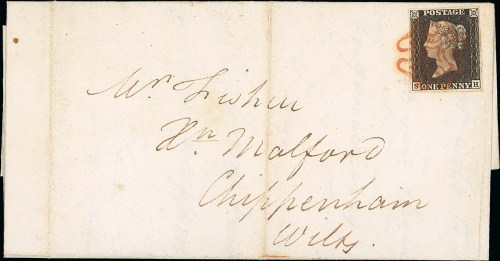 POSTAGE
S ONE PENNY H
Mr Fisher
Xn Malford
Chippenham
Wilts.